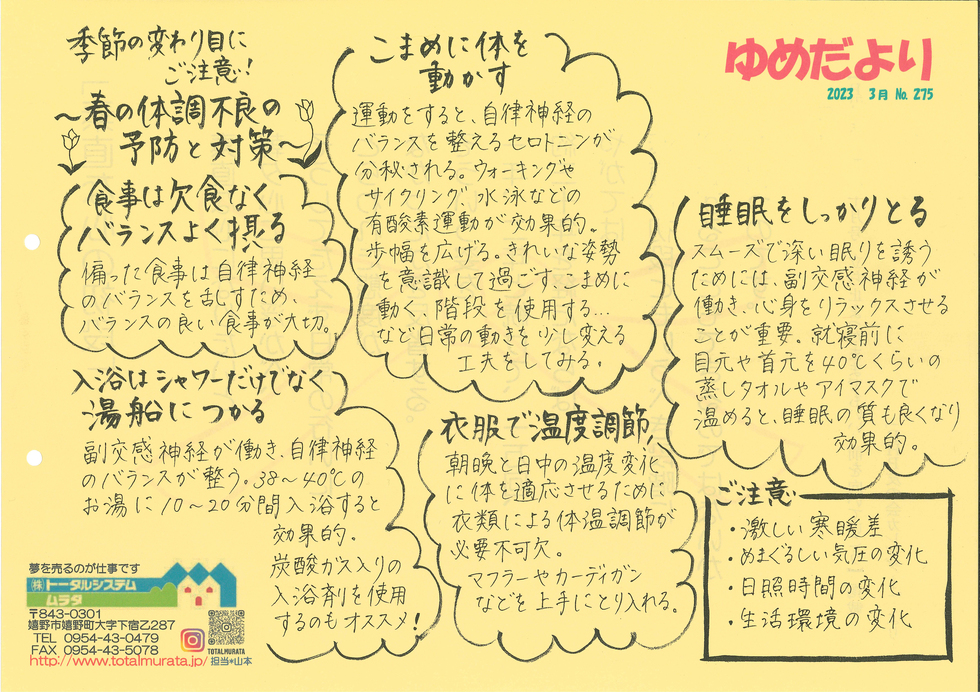 季節の変わり目に
ご注意!
～春の体調不良の
予防と対策～
食事は欠食なく
バランスよく摂る
偏った食事は自律神経
のバランスを乱すため、
バランスの良い食事が大切。
入浴はシャワーだけでなく
湯船につかる
副交感神経が働き、自律神経
のバランスが整う。38～40℃の
お湯に10～20分間入浴すると
効果的。
炭酸ガス入りの
入浴剤を使用
するのもオススメ!
こまめに体を
動かす
運動をすると、自律神経の
バランスを整えるセロトニンが
分秘される。ウォーキングや
サイクリング、水泳などの
有酸素運動が効果的。
歩幅を広げる。きれいな姿勢
を意識して過ごす。こまめに
動く、階段を使用する...
など日常の動きを少し変える
工夫をしてみる。
衣服で温度調節
朝晩と日中の温度変化
に体を適応させるために
衣類による体温調節が
必要不可欠。
マフラーやカーディガン
などを上手にとり入れる。
ゆめだより
2023 3月 No. 275
睡眠をしっかりとる
スムーズで深い眠りを誘う
ためには、副交感神経が
働き、心身をリラックスさせる
ことが重要。就寝前に
目元や首元を40℃くらいの
蒸しタオルやアイマスクで
温めると、睡眠の質も良くなり
効果的。
ご注意
・激しい寒暖差
・めまぐるしい気圧の変化
・日照時間の変化
・生活環境の変化
夢を売るのが仕事です
㈱トータルシステム
ムラタ
〒843-0301
嬉野市嬉野町大字下宿乙287
TEL 0954-43-0479
FAX 0954-43-5078
http://www.totalmurata.jp/
TOTALMURATA
担当*山本